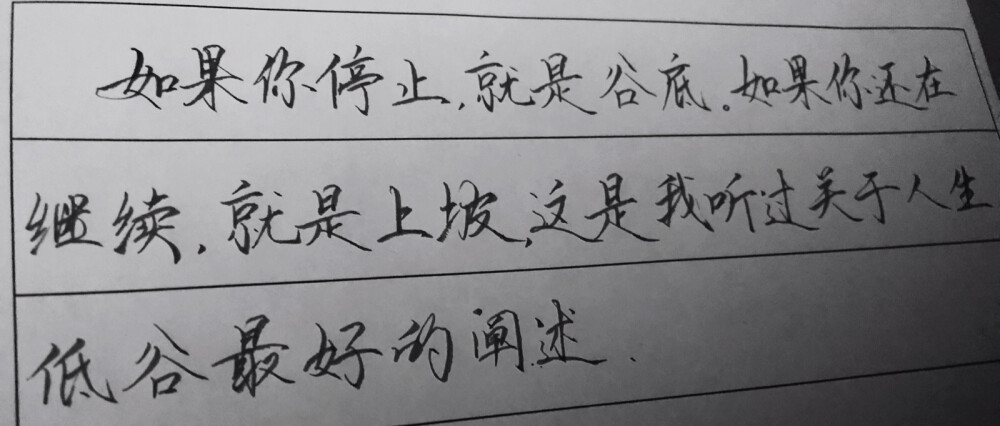 如果你停止,就是谷底.如果你还在
继续,就是上坡,这是我听过关于人生
低谷最好的阐述.